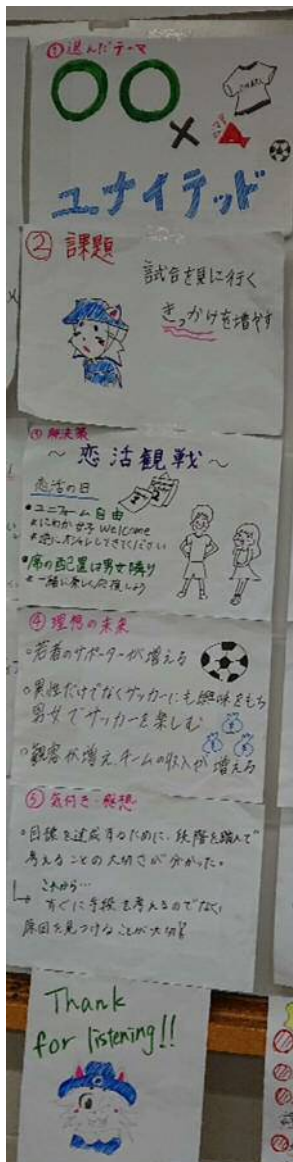 ①選んだテーマ
○○
×
ユナイテッド
②課題
試合を見に行く
きっかけを増やす
③解決策
～恋活観戦～
恋活の日
●ユニフォーム自由
*にわか女子 Welcome
*オシャレしてきてください
●席の配置は男女隣り
*一緒に楽しく応援しよう
④理想の未来
○若者のサポーターが増える
○異性だけでなくサッカーにも興味をもち
男女でサッカーを楽しむ
○観客が増え、チームの収入が増える
⑤気付き・感想
○目標を達成するために、段階を踏んで
考えることの大切さが分かった。
これから…
すぐに手段を考えるのでなく、
原因を見つけることが大切!
Thank
for listening!!